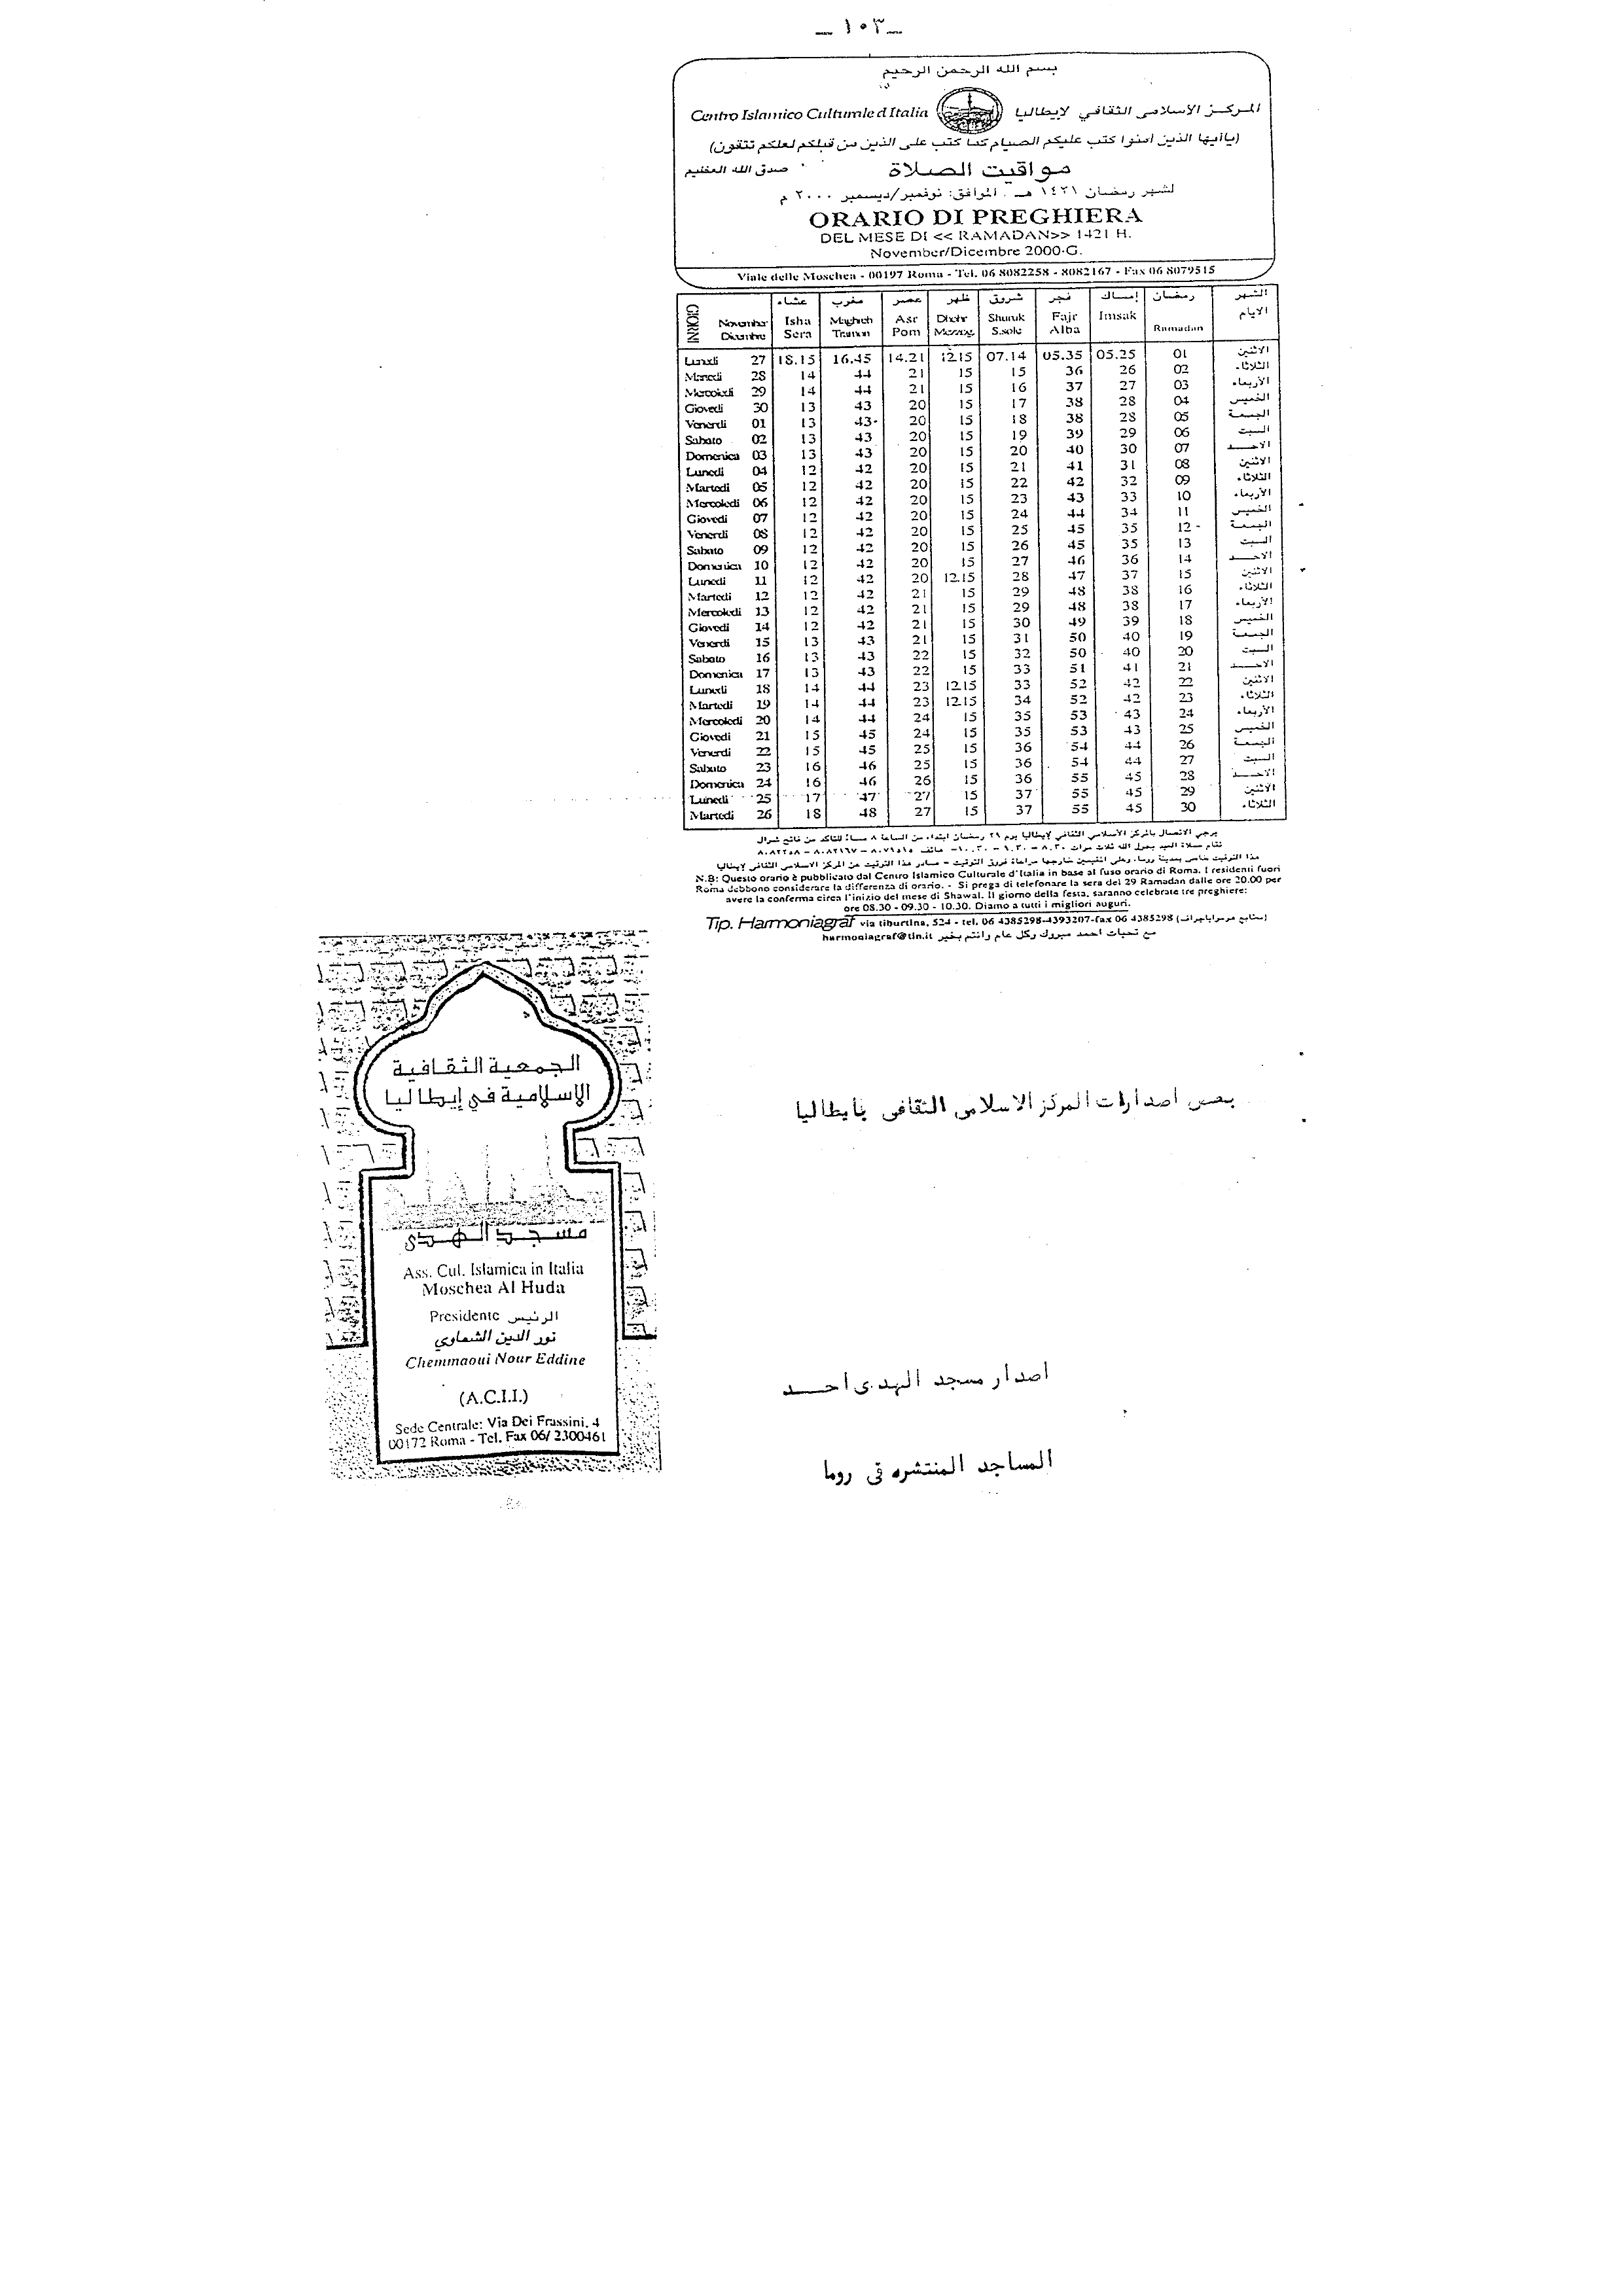 ــ ١٠٣ ــ
بسم الله الرحمن الرحيم
Centro Islamico Culturale d Italia المركز الاسلامى الثقافي لإيطاليا
(ياأيها الذين آمنوا كتب عليكم الصيام كما كتب على الذين من قبلكم لعلكم تتقون)
مواقيت الصلاة صدق الله العظيم
لشهر رمضان ١٤٢١ هـ . الموافق: نوفمبر/ديسمبر ٢٠٠٠ م
ORARIO DI PREGHIERA
DEL MESE DI << RAMADAN>> 1421 H.
November/Dicembre 2000-G.
Viale delle Moschea - 00197 Roma - Tel. 06 8082258 - 8082167 - Fax 06 8079515
عشاء مغرب عصر ظهر شروق فجر إمساك رمضان الشهر
GIORNI Isha Asr Shuruk Fajr Imsak الايام
Sera Pom S.sole Alba Ramadan
Lunedi 27 18.15 16.45 14.21 12.15 07.14 05.35 05.25 01 الاثنين
Martedi 28 14 44 21 15 15 36 26 02 الثلاثاء
Mercoledi 29 14 44 21 15 16 37 27 03 الأربعاء
Giovedi 30 13 43 20 15 17 38 28 04 الخميس
Venerdi 01 13 43 20 15 18 38 28 05 الجمعة
Sabato 02 13 43 20 15 19 39 29 06 السبت
Domenica 03 13 43 20 15 20 40 30 07 الاحد
Lunedi 04 12 42 20 15 21 41 31 08 الاثنين
Martedi 05 12 42 20 15 22 42 32 09 الثلاثاء
Mercoledi 06 12 42 20 15 23 43 33 10 الأربعاء
Giovedi 07 12 42 20 15 24 44 34 11 الخميس
Venerdi 08 12 42 20 15 25 45 35 12 الجمعة
Sabato 09 12 42 20 15 26 45 35 13 السبت
Domenica 10 12 42 20 15 27 46 36 14 الاحد
Lunedi 11 12 42 20 12.15 28 47 37 15 الاثنين
Martedi 12 12 42 21 15 29 48 38 16 الثلاثاء
Mercoledi 13 12 42 21 15 29 48 38 17 الأربعاء
Giovedi 14 12 42 21 15 30 49 39 18 الخميس
Venerdi 15 13 43 21 15 31 50 40 19 الجمعة
Sabato 16 13 43 22 15 32 50 40 20 السبت
Domenica 17 13 43 22 15 33 51 41 21 الاحد
Lunedi 18 14 44 23 12.15 33 52 42 22 الاثنين
Martedi 19 14 44 23 12.15 34 52 42 23 الثلاثاء
Mercoledi 20 14 44 24 15 35 53 43 24 الأربعاء
Giovedi 21 15 45 24 15 35 53 43 25 الخميس
Venerdi 22 15 45 25 15 36 54 44 26 الجمعة
Sabato 23 16 46 25 15 36 54 44 27 السبت
Domenica 24 16 46 26 15 36 55 45 28 الاحد
Lunedi 25 17 47 27 15 37 55 45 29 الاثنين
Martedi 26 18 48 27 15 37 55 45 30 الثلاثاء
يرجى الاتصال بالمركز الاسلامي الثقافي لإيطاليا يوم ٢٩ رمضان ابتداء من الساعة ٨ مساءً للتأكد من فاتح شوال
تقام صلاة العيد بحول الله ثلاث مرات ٨،٣٠ – ٩،٣٠ – ١٠،٣٠ – هاتف ٨٠٧٩٥١٥ – ٨٠٨٢١٦٧ – ٨٠٨٢٢٥٨
هذا التوقيت خاص بمدينة روما، وعلى المقيمين خارجها مراعاة فروق التوقيت – صادر هذا التوقيت عن المركز الاسلامي الثقافي لإيطاليا
N.B: Questo orario è pubblicato dal Centro Islamico Culturale d'Italia in base al fuso orario di Roma. I residenti fuori
Roma debbono considerare la differenza di orario. - Si prega di telefonare la sera del 29 Ramadan dalle ore 20.00 per
avere la conferma circa l'inizio del mese di Shawal. Il giorno della festa, saranno celebrate tre preghiere:
ore 08.30 - 09.30 - 10.30. Diamo a tutti i migliori auguri.
Tip. Harmoniagraf via tiburtina, 524 - tel. 06 4385298-4393207-fax 06 4385298
harmoniagraf@tin.it مع تحيات احمد مبروك وكل عام وانتم بخير
بعض اصدارات المركز الاسلامى الثقافى بايطاليا
الجمعية الثقافية
الإسلامية في إيطاليا
مسجد الهدى
Ass. Cul. Islamica in Italia
Moschea Al Huda
Presidente الرئيس
نور الدين الشماوي
Chemmaoui Nour Eddine
(A.C.I.I.)
Sede Centrale: Via Dei Frassini, 4
00172 Roma - Tel. Fax 06/ 2300461
اصدار مسجد الهدى احد
المساجد المنتشره فى روما